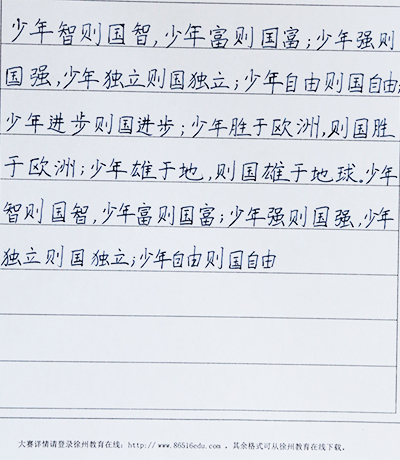 少年智则国智,少年富则国富;少年强则
国强,少年独立则国独立;少年自由则国自由;
少年进步则国进步;少年胜于欧洲,则国胜
于欧洲;少年雄于地,则国雄于地球。少年
智则国智,少年富则国富;少年强则国强,少年
独立则国独立;少年自由则国自由
大赛详情请登录徐州教育在线:http://www.86516edu.com 。其余格式可从徐州教育在线下载。